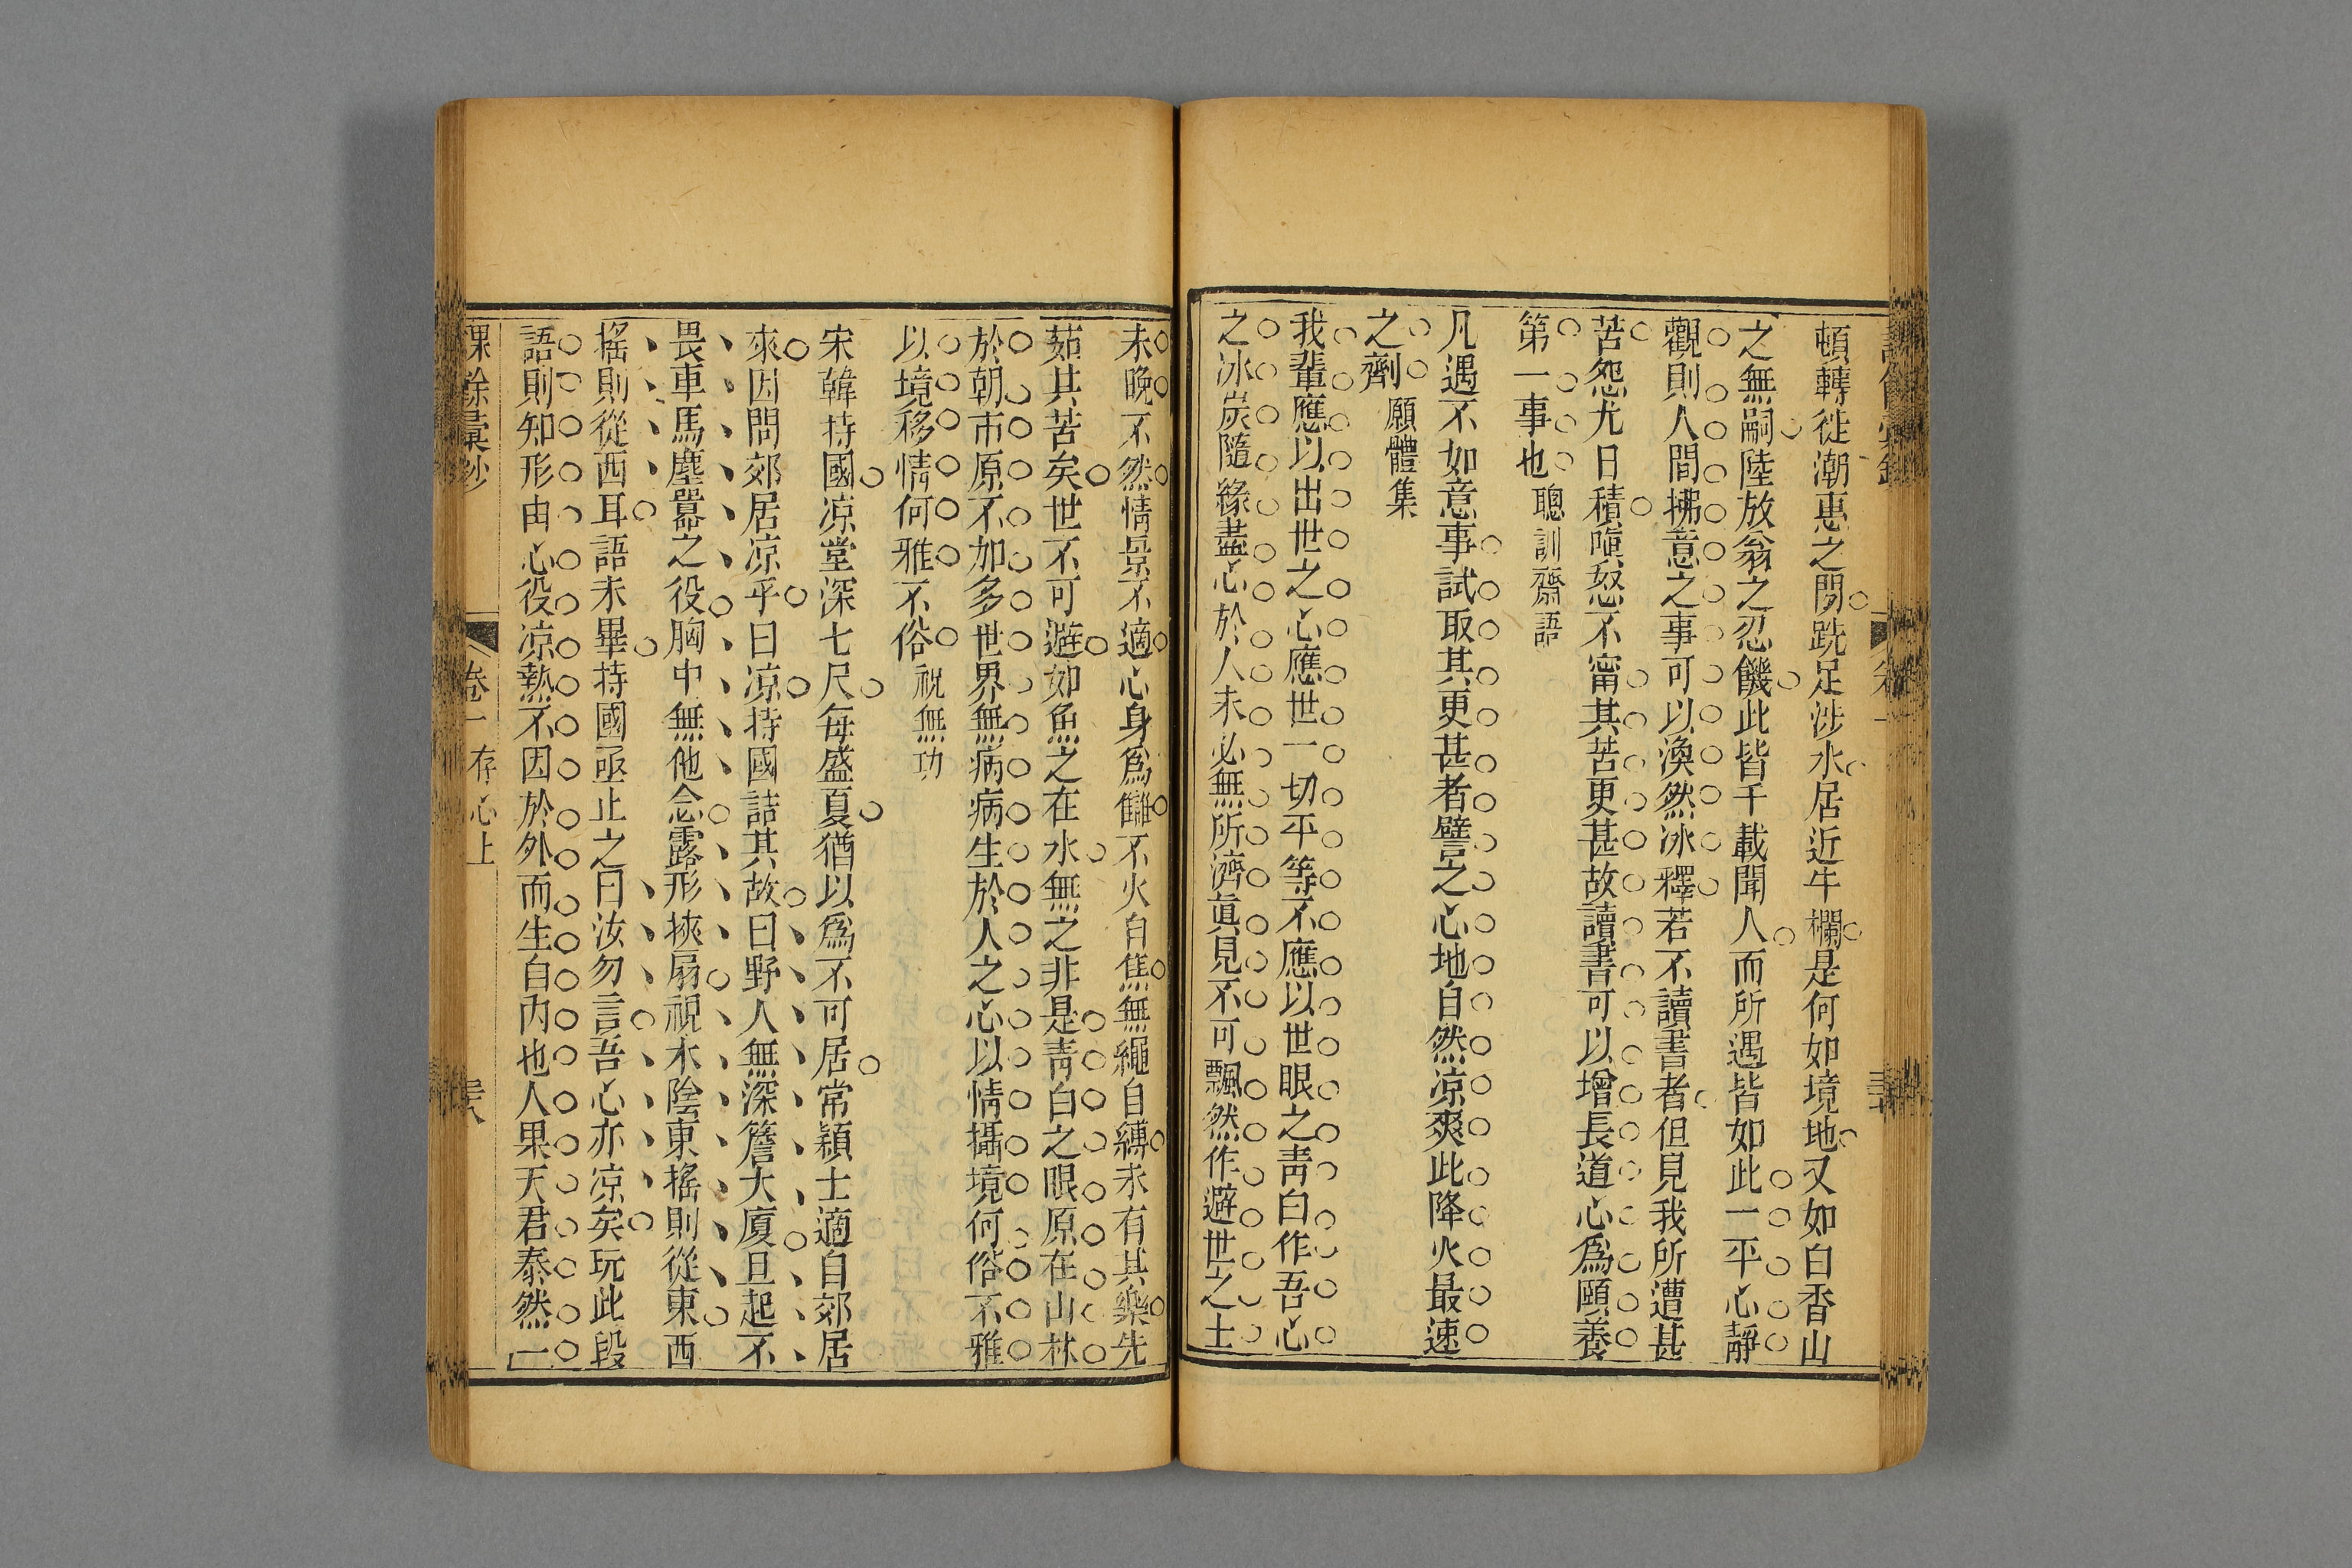 頓轉徙潮惠之間跣足涉水居近牛欄是何如境地又如白香山
之無嗣陸放翁之忍饑此皆千載聞人而所遇皆如此一平心靜
觀則人間拂意之事可以渙然冰釋若不讀書者但見我所遭甚
苦怨尤日積嗔怒不甯其苦更甚故讀書可以增長道心爲頤養
第一事也 聰訓齋語
凡遇不如意事試取其更甚者譬之心地自然凉爽此降火最速
之劑 願體集
我輩應以出世之心應世一切平等不應以世眼之靑白作吾心
之冰炭隨緣盡心於人未必無所濟眞見不可飄然作避世之士
未晚不然情景不適心身爲讎不火自焦無繩自縛未有其樂先
茹其苦矣世不可避如魚之在水無之非是靑白之眼原在山林
於朝市原不加多世界無病病生於人之心以情攝境何俗不雅
以境移情何雅不俗 祝無功
宋韓持國凉堂深七尺每盛夏猶以爲不可居常穎士適自郊居
來因問郊居凉乎曰凉持國詰其故曰野人無深簷大廈旦起不
畏車馬塵嚣之役胸中無他念露形挾扇視木陰東搖則從東西
搖則從西耳語未畢持國亟止之曰汝勿言吾心亦凉矣玩此段
語則知形由心役凉熱不因於外而生自內也人果天君泰然一
課餘彙鈔 卷一 存心上 三八